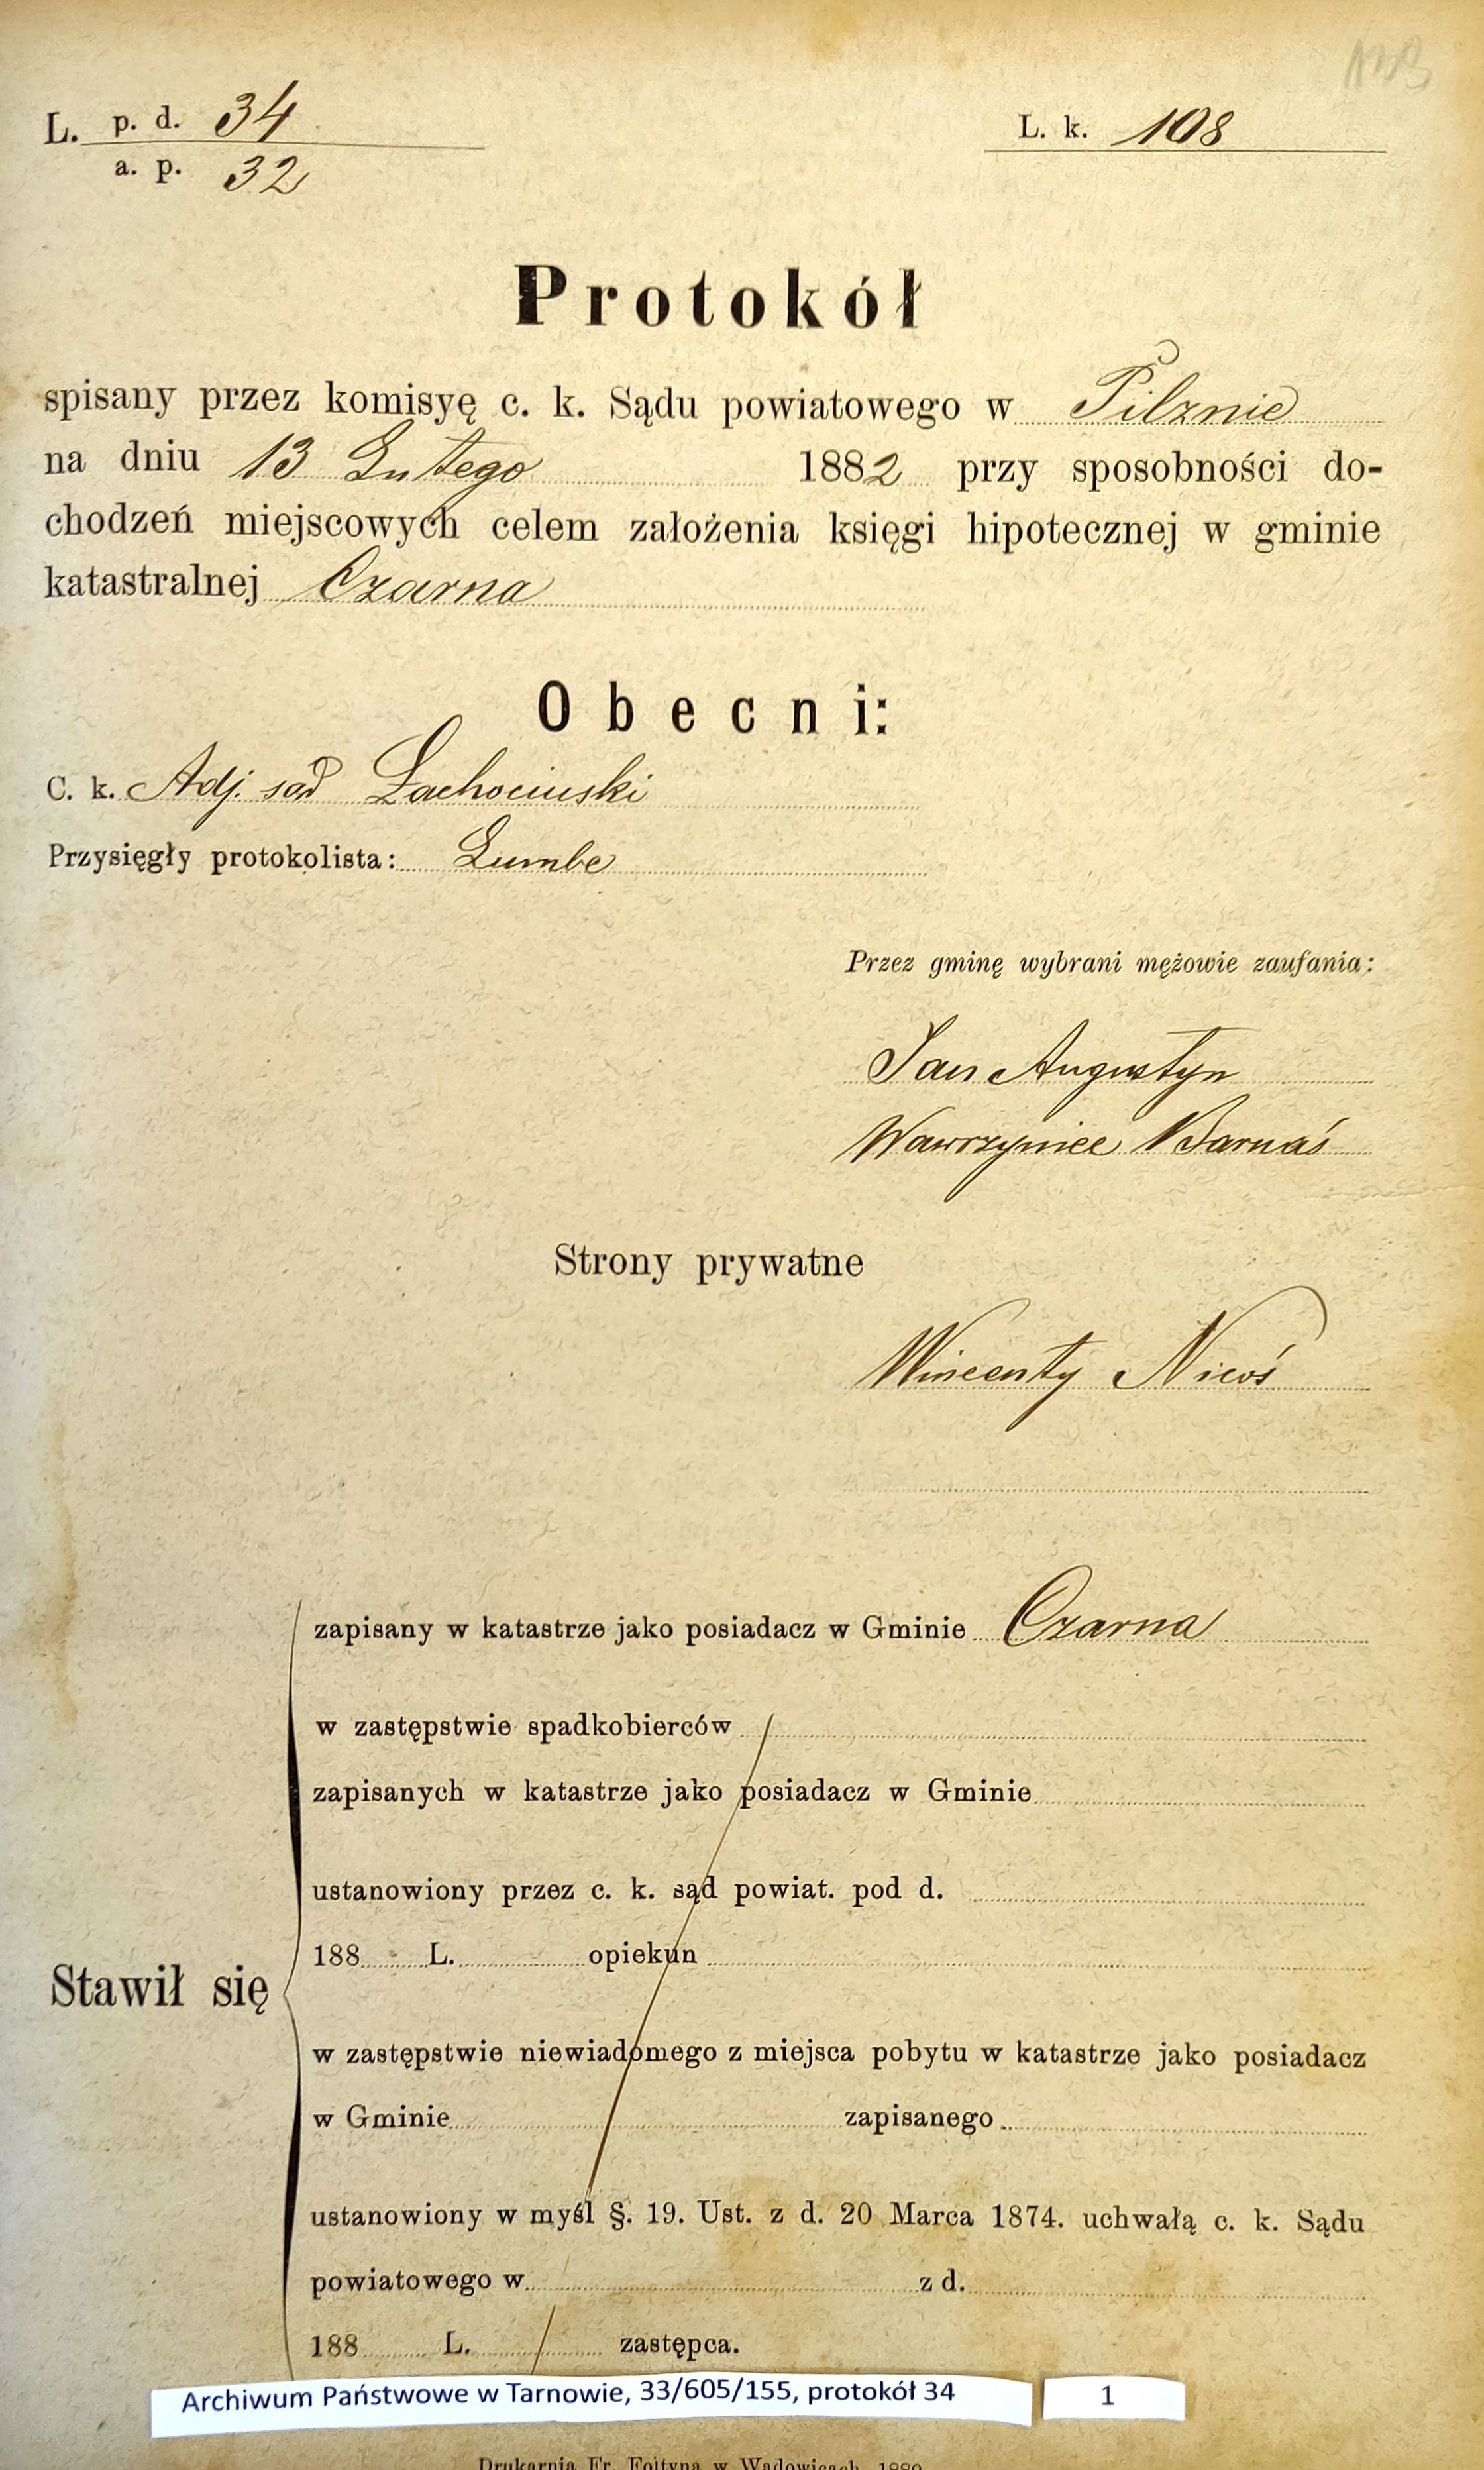 L. p. d. 34
a. p. 32
L. k. 108
Protokół
spisany przez komisyę c. k. Sądu powiatowego w Pilznie
na dniu 13 Lutego 1882 przy sposobności do-
chodzeń miejscowych celem założenia księgi hipotecznej w gminie
katastralnej Czarna
Obecni:
C. k. Adj. sąd Lachociński
Przysięgły protokolista: Lumbe
Przez gminę wybrani mężowie zaufania:
Jan Augustyn
Wawrzyniec Barnaś
Strony prywatne
Wincenty Nicoś
zapisany w katastrze jako posiadacz w Gminie Czarna
w zastępstwie spadkobierców
zapisanych w katastrze jako posiadacz w Gminie
ustanowiony przez c. k. sąd powiat. pod d.
188 L. opiekun
Stawił się
w zastępstwie niewiadomego z miejsca pobytu w katastrze jako posiadacz
w Gminie zapisanego
ustanowiony w myśl §. 19. Ust. z d. 20 Marca 1874. uchwałą c. k. Sądu
powiatowego w z d.
188 L. zastępca.
Archiwum Państwowe w Tarnowie, 33/605/155, protokół 34
1
Drukarnia Fr. Foltyna w Wadowicach